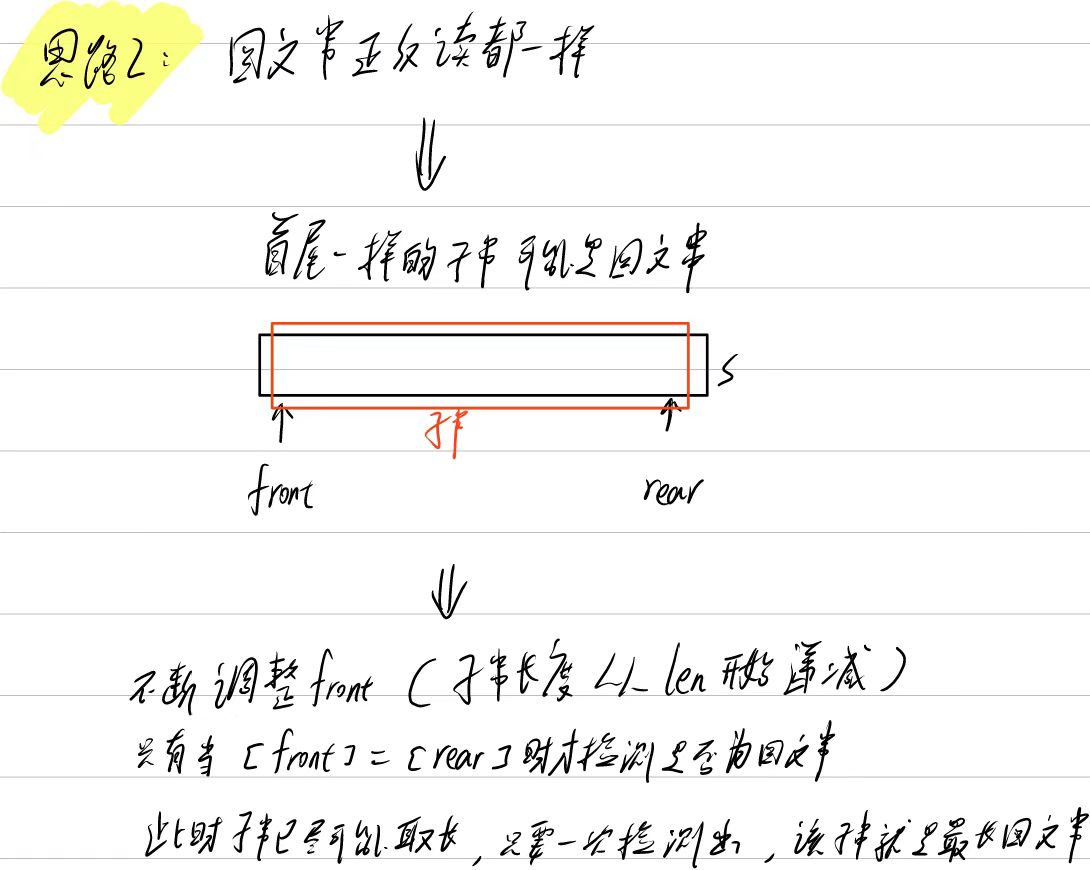 思路2: 回文串正反读都一样
首尾一样的子串可能是回文串
S
子串
front rear
不断调整front (子串长度从len开始递减)
只有当[front]=[rear]时才检测是否为回文串
此时子串已尽可能取长,只要一次检测出,该子串就是最长回文串